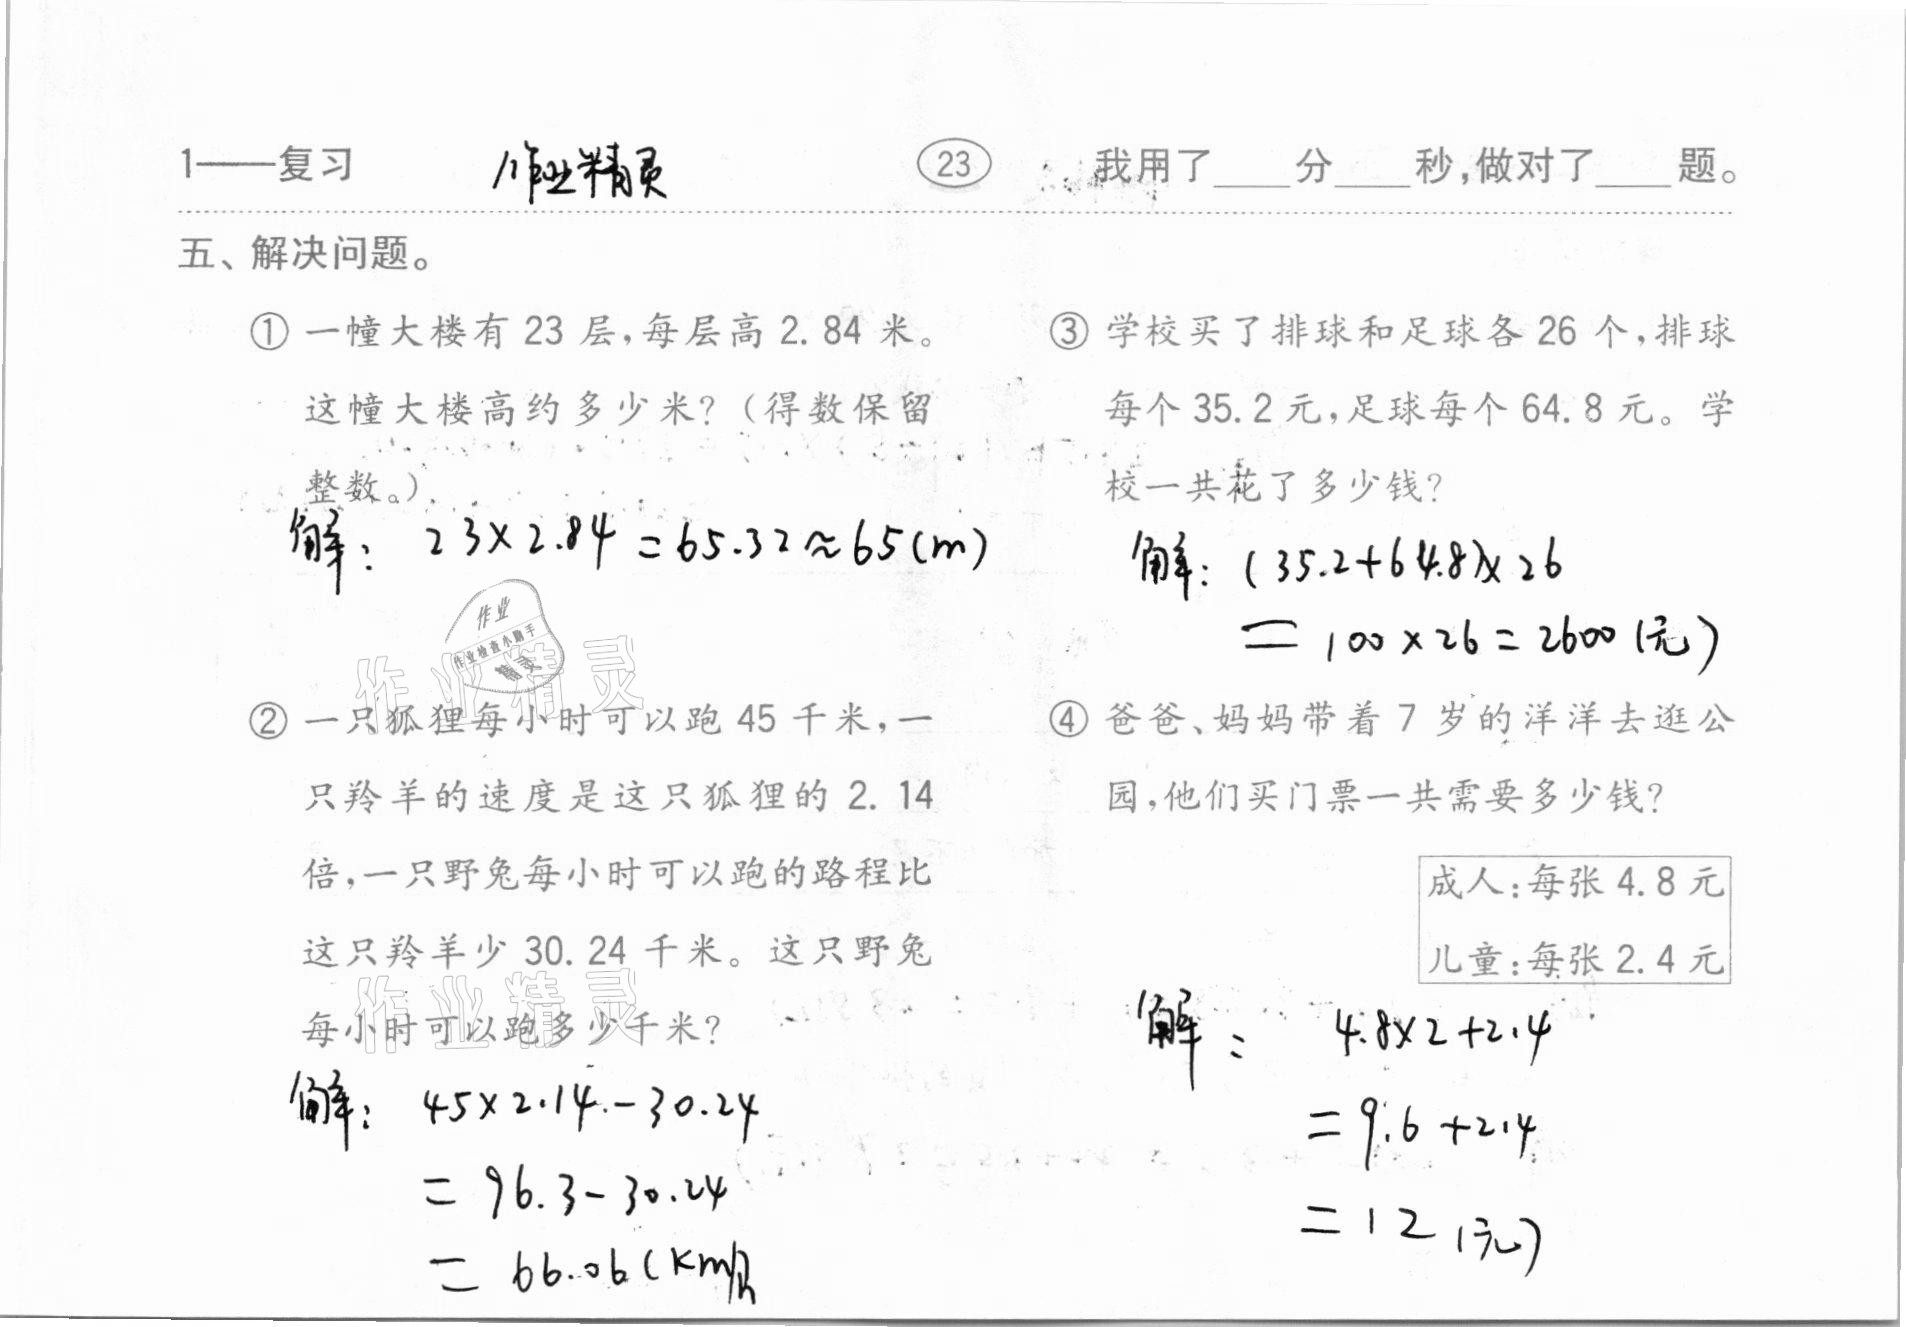 1——复习 作业精灵 23 我用了____分____秒,做对了____题。
五、解决问题。
① 一幢大楼有 23 层,每层高 2.84 米。
这幢大楼高约多少米?(得数保留
整数。)
解: 23×2.84=65.32≈65(m)
作业
作业检查小助手
精灵
作业精灵
② 一只狐狸每小时可以跑 45 千米,一
只羚羊的速度是这只狐狸的 2.14
倍,一只野兔每小时可以跑的路程比
这只羚羊少 30.24 千米。这只野兔
作业精灵
每小时可以跑多少千米?
解: 45×2.14-30.24
=96.3-30.24
=66.06(km/h
③ 学校买了排球和足球各 26 个,排球
每个 35.2 元,足球每个 64.8 元。学
校一共花了多少钱?
解:(35.2+64.8)×26
=100×26=2600(元)
④ 爸爸、妈妈带着 7 岁的洋洋去逛公
园,他们买门票一共需要多少钱?
成人:每张 4.8 元
儿童:每张 2.4 元
解: 4.8×2+2.4
=9.6+2.4
=12(元)